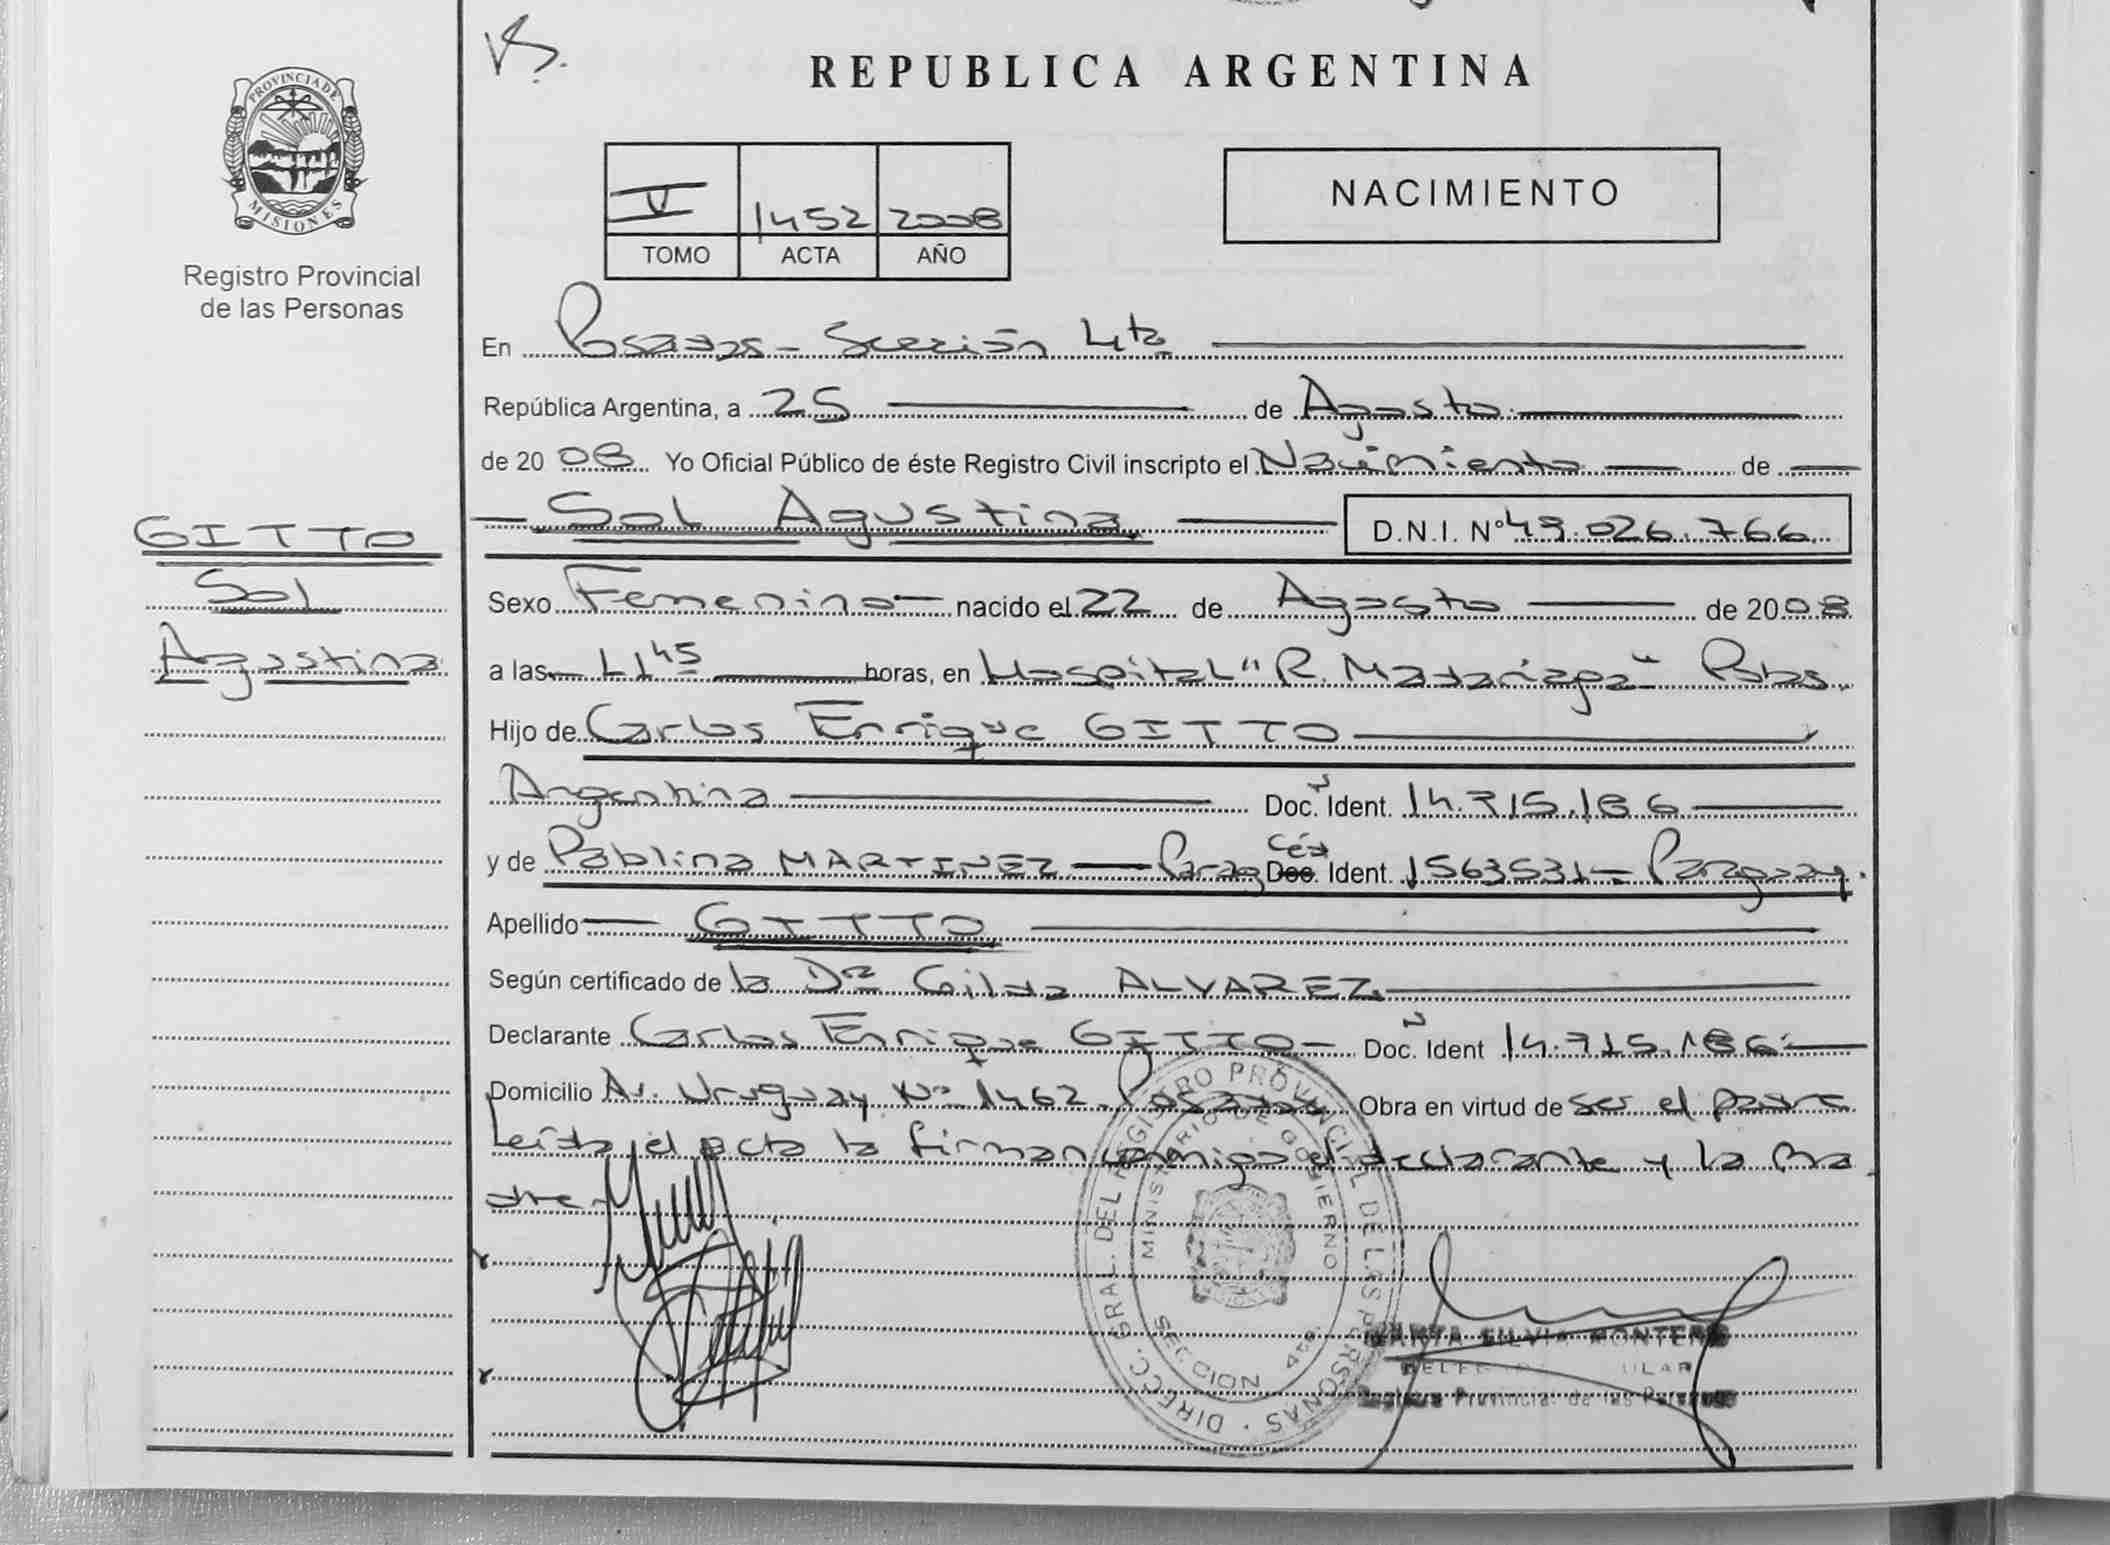 VS.
REPUBLICA ARGENTINA
PROVINCIA DE MISIONES
Registro Provincial
de las Personas
V 1452 2008
TOMO ACTA AÑO
NACIMIENTO
En Posadas - Sección 4ta
República Argentina, a 25 de Agosto
de 2008 Yo Oficial Público de éste Registro Civil inscripto el Nacimiento de
Sol Agustina D.N.I. Nº 49.026.766
GITTO
Sol
Agustina
Sexo Femenino nacido el 22 de Agosto de 2008
a las 11 45 horas, en Hospital "R. Madariaga" Pdas.
Hijo de Carlos Enrique GITTO
Argentina Doc. N Ident. 14.715.186
y de Pablina MARTINEZ - Parag Céd Doc. Ident. 1563531 - Paraguay.
Apellido GITTO
Según certificado de la Dra Gilda ALVAREZ
Declarante Carlos Enrique GITTO - Doc. N Ident 14.715.186
Domicilio Av. Uruguay Nº 1462 Posadas Obra en virtud de ser el padre
Leída el acta la firman conmigo el declarante y la ma
dre
DIRECC. GRAL. DEL REGISTRO PROVINCIAL DE LAS PERSONAS
MINISTERIO DE GOBIERNO
SECCION 4ta.
MARTA SILVIA MONTERO
Registro Provincial de las Personas